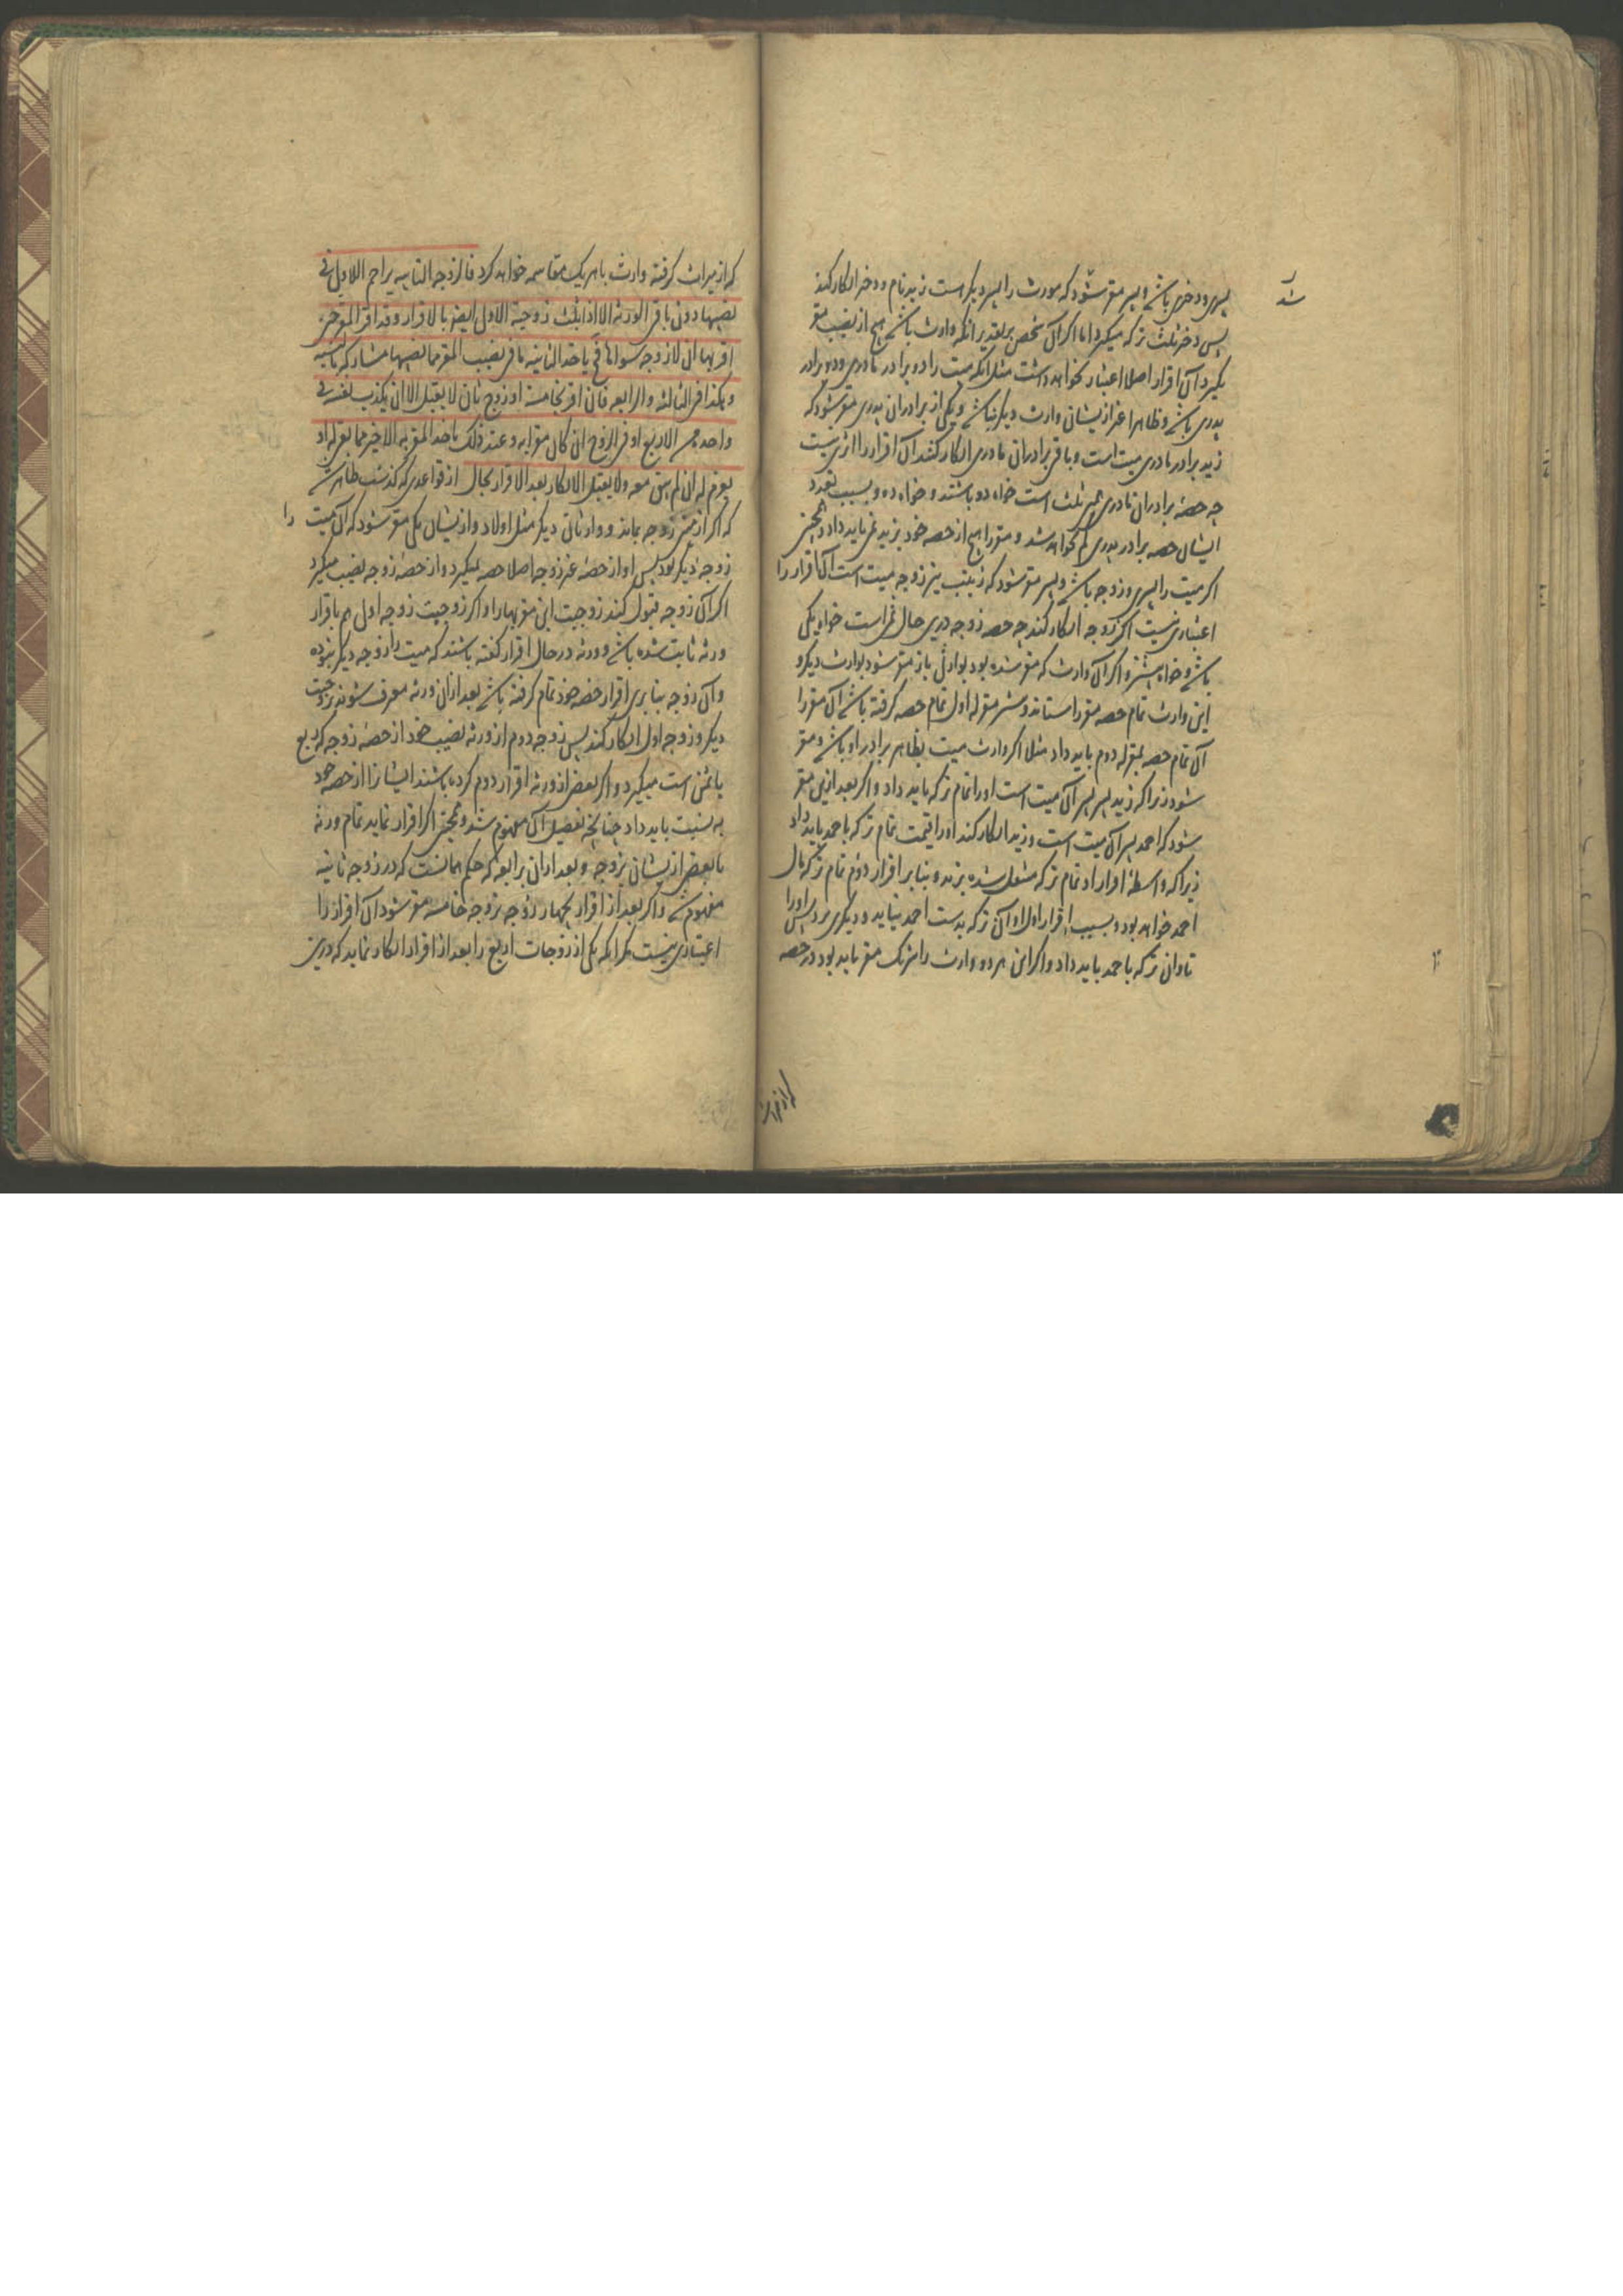 پسری و دختری باشد و پسر مقر شود که مورث را پسر دیگر است زید نام و دختر انکار کند
پس دختر ثلث ترکه میگیرد اما اگر آن شخص بر تقدیر آنکه وارث باشد هیچ از نصیب مقر
نگیرد آن اقرار اصلا اعتبار نخواهد داشت مثل آنکه میت را دو برادر مادری و دو برادر
پدری باشد و ظاهرا غیر ازیشان وارث دیگر نباشد و یکی از برادران پدری مقر شود که
زید برادر مادری میت است و باقی برادران مادری انکار کنند آن اقرار را اثری نیست
چه حصهٔ برادران مادری ثلث است خواه دو باشند و خواه ده و بسبب تعدد
ایشان حصه برادر پدری کم نخواهد شد و مقر را هیچ از حصه خود بزید نمی باید داد و همچنین
اگر میت را پسری و زوجه باشد و پسر مقر شود که زینب نیز زوجه میت است آن اقرار را
اعتباری نیست اگر زوجه انکار کند چه حصه زوجه درین حال ثمن است خواه یکی
باشد و خواه بیشتر و اگر آن وارث که مقر شده بود بوارثی باز مقر شود بوارث دیگر و
این وارث تمام حصه مقر را ستاند و مقر له اول تمام حصه گرفته باشد آن مقر را
آن تمام حصه بمقر له دوم باید داد مثلا اگر وارث میت بظاهر برادر او باشد و مقر
شود زیرا که زید پسر پسر آن میت است او را تمام ترکه باید داد و اگر بعد ازین مقر
شود که احمد پسر آن میت است و زید انکار کند او را قیمت تمام ترکه باحمد باید داد
زیرا که واسطهٔ اقرار او تمام ترکه منتقل شده بزید و بنا بر اقرار دوم تمام ترکه مال
احمد خواهد بود و بسبب اقرار اول او آن ترکه بدست احمد نیاید و دیگری برد پس او را
تاوان ترکه باحمد باید داد و اگر این هر دو وارث را شریک مقر باید بود در حصه
که از میراث
که از میراث گرفته وارث با هر یک مقاسمه خواهد کرد فالزوجة الثانیه یزاحم الاولی فی
نصیبها دون باقی الورثه الا اذا ثبت زوجیة الاولی ایضا بالاقرار و قد اقر المقر حین
اقر بها ان لا زوجه سواها فح یاخذ الثانیه من نصیب المقر مما نصیبها مشارکه بالنسبه
و هکذا فی الثالثه و الرابعه فان اقر بخامسة او زوج ثان لا یقبل الا ان یکذب نفسه فی
واحده من الاربع او فی الزوج ان کان مقرا به و عند ذلک یاخذ المقر به الاخیر مما بقی له او
یغرم له ان لم یبق معه و لا یقبل الانکار بعد الاقرار بحال از قواعدی که گذشت ظاهر شد
که اگر از میت زوجه بماند و وارثان دیگر مثل اولاد و ازیشان یکی مقر شود که آن میت را
زوجهٔ دیگر بود پس او از حصهٔ غیر زوجه اصلا حصه نمیگیرد و از حصهٔ زوجه نصیب میگیرد
اگر آن زوجه قبول کند زوجیت این مقر بها را و اگر زوجیت زوجه اول هم باقرار
ورثه ثابت شده باشد و ورثه در حال اقرار گفته باشند که میت را زوجه دیگر نبوده
و آن زوجه بنا برین اقرار حصه خود تمام گرفته باشد بعد از آن ورثه معترف شوند بزوجیت
دیگر و زوجه اول انکار کند پس زوجه دوم از ورثه نصیب خود از حصهٔ زوجه که ربع
یا ثمن است میگیرد و اگر بعضی از ورثه اقرار دوم کرده باشند ایشان را از حصه خود
به نسبت باید داد چنانچه تفصیل آن مفهوم شد و همچنین اگر اقرار نماید تمام ورثه
یا بعضی ازیشان بزوجه و بعد از آن برابعه که حکم همانست که در زوجه ثانیه
مفهوم شد و اگر بعد از اقرار بچهار زوجه بزوجه خامسه مقر شود آن اقرار را
اعتباری نیست مگر آنکه یکی از زوجات اربع را بعد از اقرار انکار نماید که درین